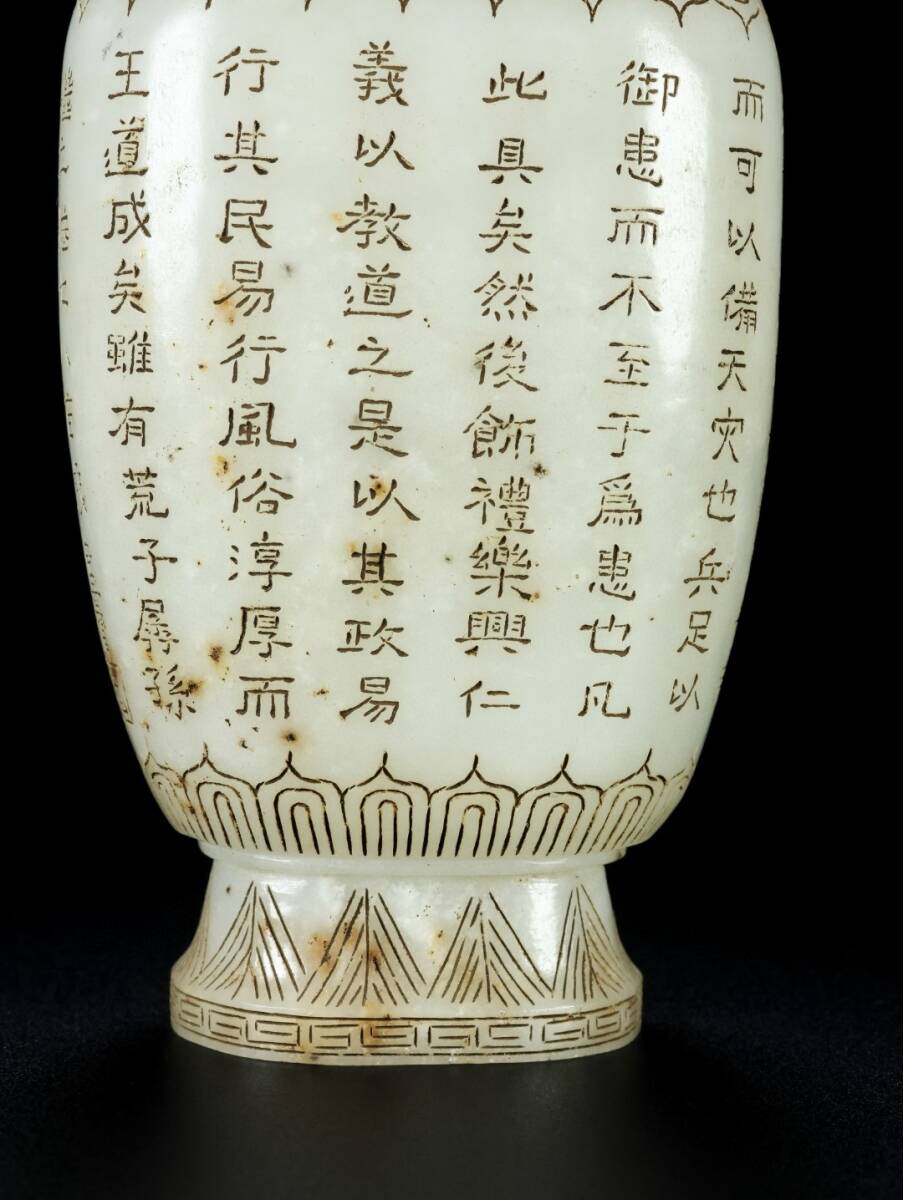 而可以備天灾也兵足以
御患而不至于爲患也凡
此具矣然後飾禮樂興仁
義以教道之是以其政易
行其民易行風俗淳厚而
王道成矣雖有荒子孱孫